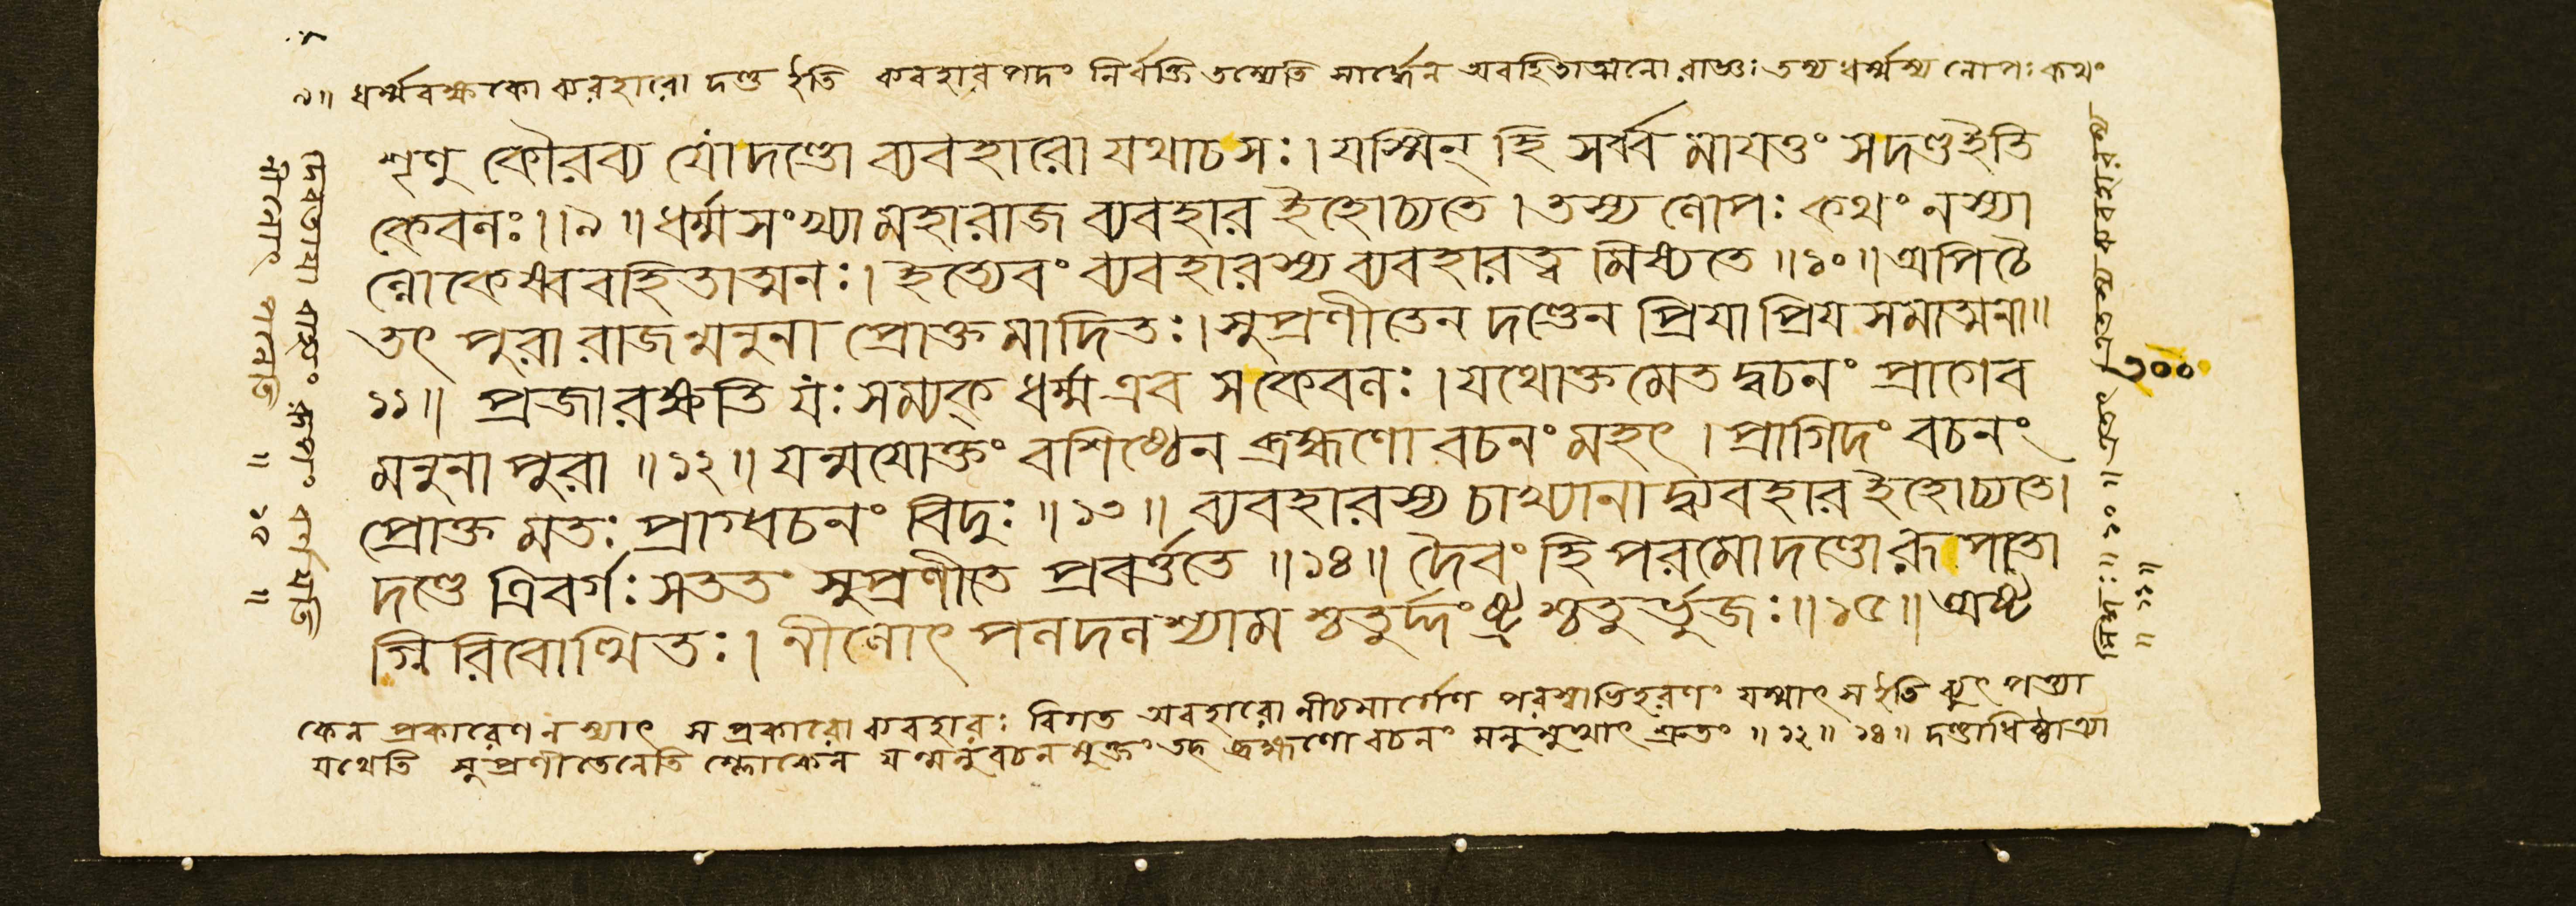 ৯॥ ধর্ম্মরক্ষকো ব্যবহারো দণ্ড ইতি ব্যবহারপদং নির্বক্তি তস্যেতি সার্দ্ধেন অবহিতাত্মনো রাজ্ঞঃ তস্য ধর্ম্মস্য লোপঃ কথং
শৃণু কৌরব্য যোদণ্ডো ব্যবহারো যথাচসঃ। যস্মিন্ হি সর্ব্ব মাযত্তং সদণ্ডইতি
কেবলঃ॥৯॥ ধর্ম্মসংখ্যা মহারাজ ব্যবহার ইহোচ্যতে। তস্য লোপঃ কথং নস্যা
ল্লোকেষ্ববহিতাত্মনঃ। ইত্যেবং ব্যবহারস্য ব্যবহারত্ব মিষ্যতে॥১০॥ অপিচৈ
তৎ পুরা রাজন্মনুনা প্রোক্ত মাদিতঃ। সুপ্রণীতেন দণ্ডেন প্রিযাপ্রিয সমাত্মনা॥
১১॥ প্রজারক্ষতি যঃ সম্যক্ ধর্ম্ম এব সকেবলঃ। যথোক্ত মেত দ্বচনং প্রাগেব
মনুনা পুরা॥১২॥ যন্মযোক্তং বশিষ্ঠেন ব্রহ্মণো বচনং মহৎ। প্রাগিদং বচনং
প্রোক্ত মতঃ প্রাগ্বচনং বিদুঃ॥১৩॥ ব্যবহারস্য চাখ্যানাদ্ব্যবহার ইহোচ্যতে।
দণ্ডে ত্রিবর্গঃ সততং সুপ্রণীতে প্রবর্ত্ততে॥১৪॥ দৈবং হি পরমো দণ্ডো রূপতো
গ্নি রিবোত্থিতঃ। নীলোৎ পলদলশ্যাম শ্চতুর্দ্দংষ্ট্র শ্চতুর্ভুজঃ॥১৫॥ অষ্ট
কেন প্রকারেণ ন স্যাৎ স প্রকারো ব্যবহারঃ বিগত অবহারো নীচমার্গেণ পরস্বাভিহরণং যস্মাৎ স ইতি ব্যুৎপত্ত্যা
যথেতি সুপ্রণীতেনেতি শ্লোকেন যন্মনুবচন মুক্তং তদ্ ব্রহ্মণো বচনং মনুমুখাৎ শ্রুতং॥১২॥ ১৪॥ দণ্ডাধিষ্ঠাত্র্যা
৩০০